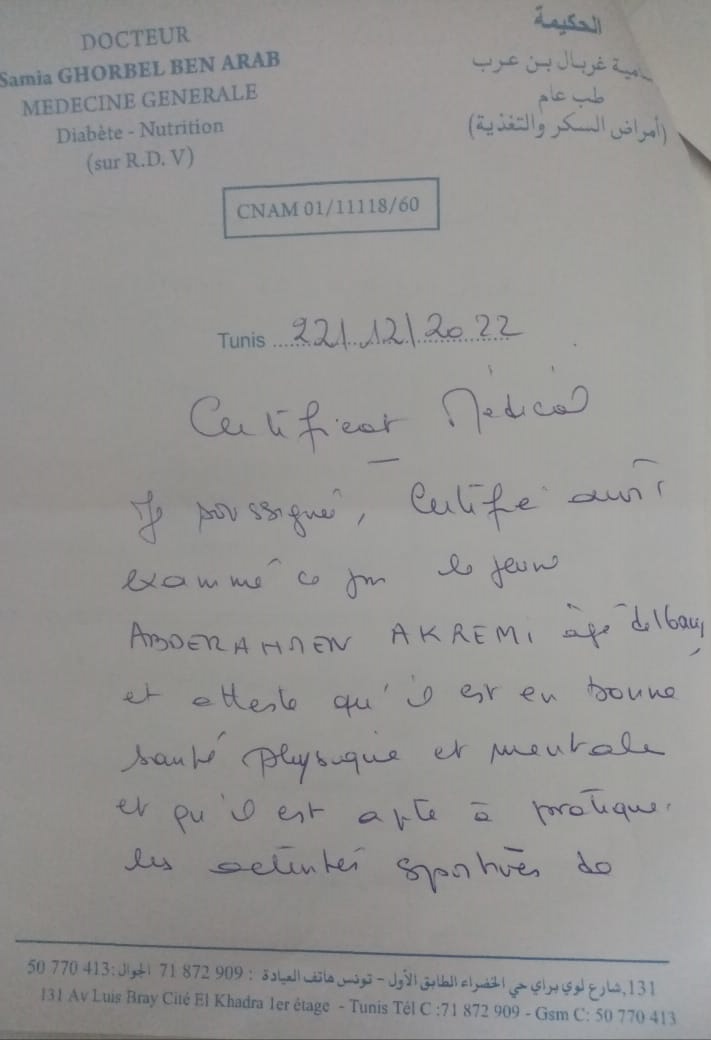 DOCTEUR
Samia GHORBEL BEN ARAB
MEDECINE GENERALE
Diabète - Nutrition
(sur R.D. V)
الحكيمة
سامية غربال بن عرب
طب عام
(أمراض السكر والتغذية)
CNAM 01/11118/60
Tunis 22/12/2022
Certificat Médical
Je soussigné, Certifie avoir
examiné ce jour le jeune
ABDERAHMEN AKREMI âgé de 16 ans
et atteste qu'il est en bonne
santé physique et mentale
et qu'il est apte à pratiquer
les activités sportives de
131, شارع لوي براي حي الخضراء الطابق الأول - تونس هاتف العيادة : 909 872 71 الجوال: 413 770 50
131 Av Luis Bray Cité El Khadra 1er étage - Tunis Tél C :71 872 909 - Gsm C: 50 770 413